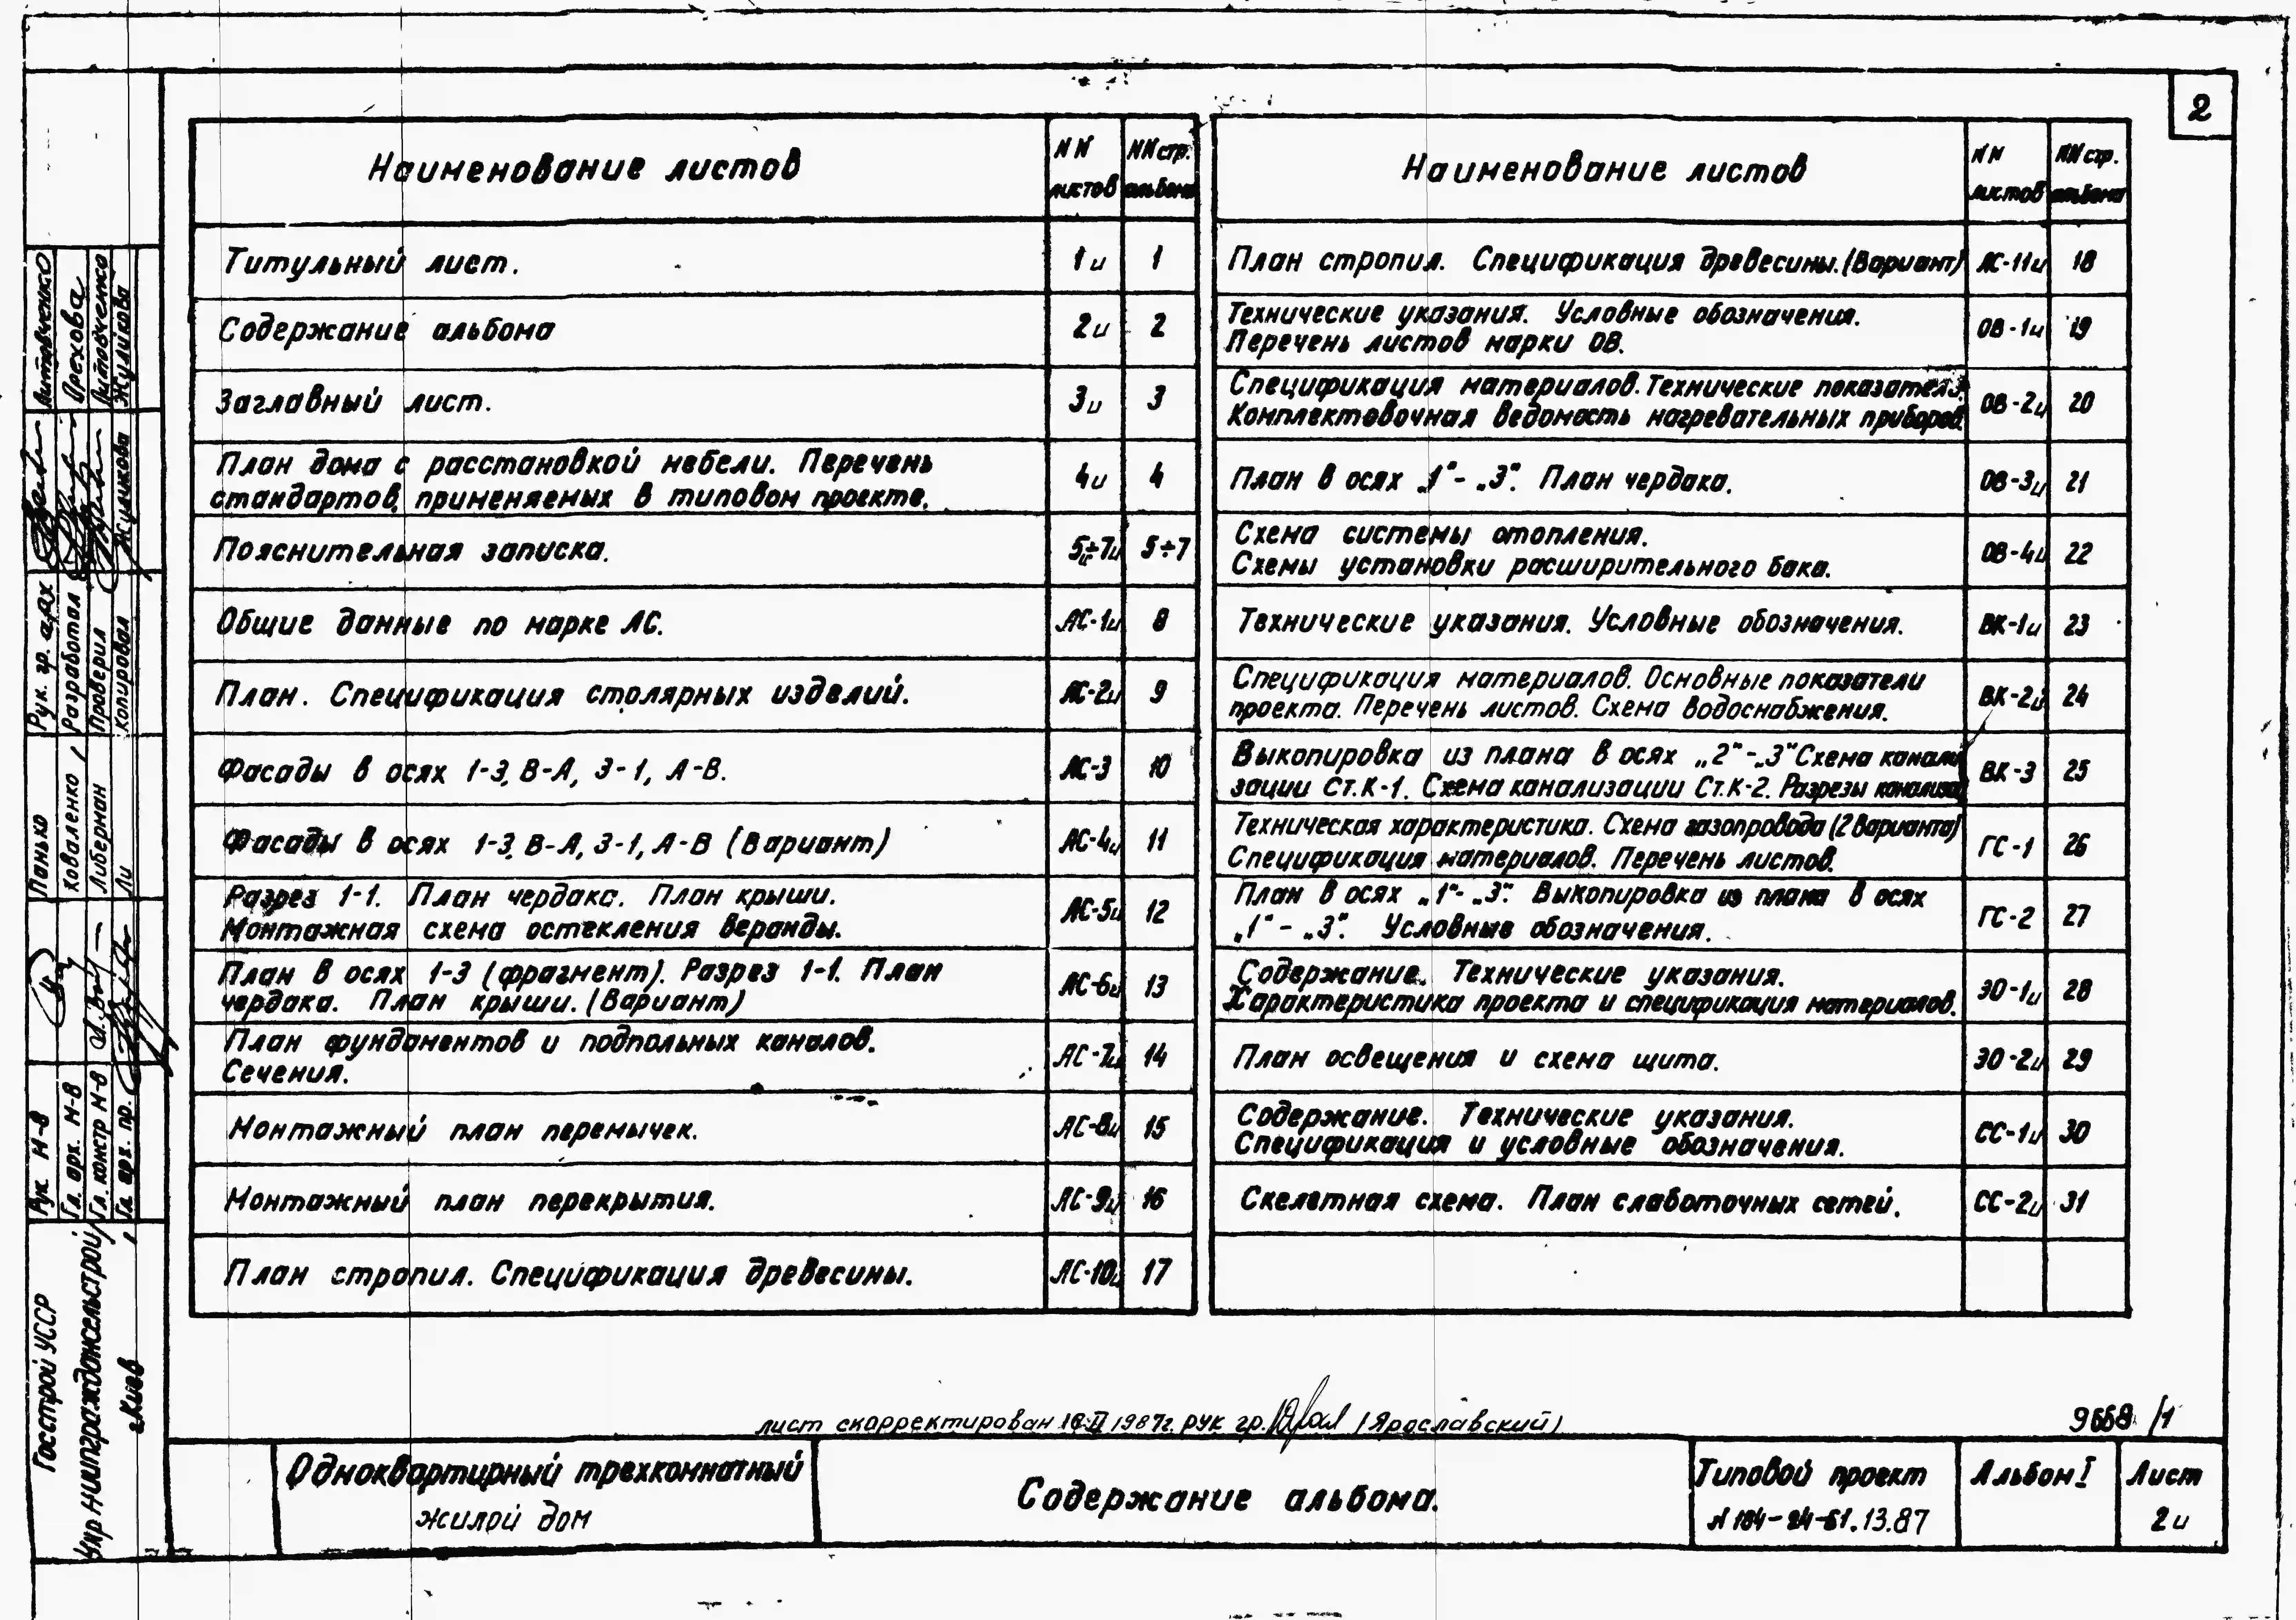 2
Наименование листов
NN листов
NN стр. альбома
Титульный лист.
1и
1
Содержание альбома
2и
2
Заглавный лист.
3и
3
План дома с расстановкой мебели. Перечень
стандартов, применяемых в типовом проекте.
4и
4
Пояснительная записка.
5и÷7и
5÷7
Общие данные по марке АС.
АС-1и
8
План. Спецификация столярных изделий.
АС-2и
9
Фасады в осях 1-3, В-А, 3-1, А-В.
АС-3
10
Фасады в осях 1-3, В-А, 3-1, А-В (Вариант)
АС-4и
11
Разрез 1-1. План чердака. План крыши.
Монтажная схема остекления веранды.
АС-5и
12
План в осях 1-3 (фрагмент). Разрез 1-1. План
чердака. План крыши. (Вариант)
АС-6и
13
План фундаментов и подпольных каналов.
Сечения.
АС-7и
14
Монтажный план перемычек.
АС-8и
15
Монтажный план перекрытия.
АС-9и
16
План стропил. Спецификация древесины.
АС-10и
17
Наименование листов
NN листов
NN стр. альбома
План стропил. Спецификация древесины. (Вариант)
АС-11и
18
Технические указания. Условные обозначения.
Перечень листов марки ОВ.
ОВ-1и
19
Спецификация материалов. Технические показатели.
Комплектовочная ведомость нагревательных приборов.
ОВ-2и
20
План в осях „1"-„3". План чердака.
ОВ-3и
21
Схема системы отопления.
Схемы установки расширительного бака.
ОВ-4и
22
Технические указания. Условные обозначения.
ВК-1и
23
Спецификация материалов. Основные показатели
проекта. Перечень листов. Схема водоснабжения.
ВК-2и
24
Выкопировка из плана в осях „2"-„3" Схема канали
зации Ст.К-1. Схема канализации Ст.К-2. Разрезы
ВК-3
25
Техническая характеристика. Схема газопровода (2 варианта)
Спецификация материалов. Перечень листов.
ГС-1
26
План в осях „1"-„3". Выкопировка из плана в осях
„1"-„3". Условные обозначения.
ГС-2
27
Содержание. Технические указания.
Характеристика проекта и спецификация материалов.
ЭО-1и
28
План освещения и схема щита.
ЭО-2и
29
Содержание. Технические указания.
Спецификация и условные обозначения.
СС-1и
30
Скелетная схема. План слаботочных сетей.
СС-2и
31
лист скорректирован 1987г. рук. гр. (Ярославский)
9668/1
Одноквартирный трехкомнатный
жилой дом
Содержание альбома.
Типовой проект
N 184-24-61.13.87
Альбом I
Лист
2и
Госстрой УССР
УкрНИИПграждансельстрой
г. Киев
Рук. М-в
Гл. арх. М-в
Гл. констр. М-в
Гл. арх. пр.
Панько
Коваленко
Либерман
Ли
Рук. гр. арх
Разработал
Проверил
Копировал
Литовченко
Орехова
Литовченко
Жуликова